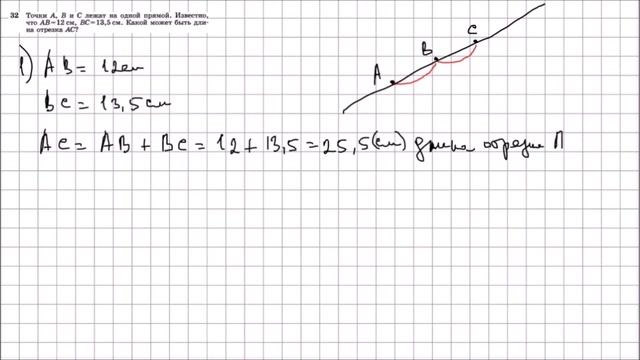 32 Точки A, B и C лежат на одной прямой. Известно,
что AB=12 см, BC=13,5 см. Какой может быть дли-
на отрезка AC?
1) AB = 12см
BC = 13,5см
AC = AB + BC = 12 + 13,5 = 25,5(см) длина отрезка A
A
B
C